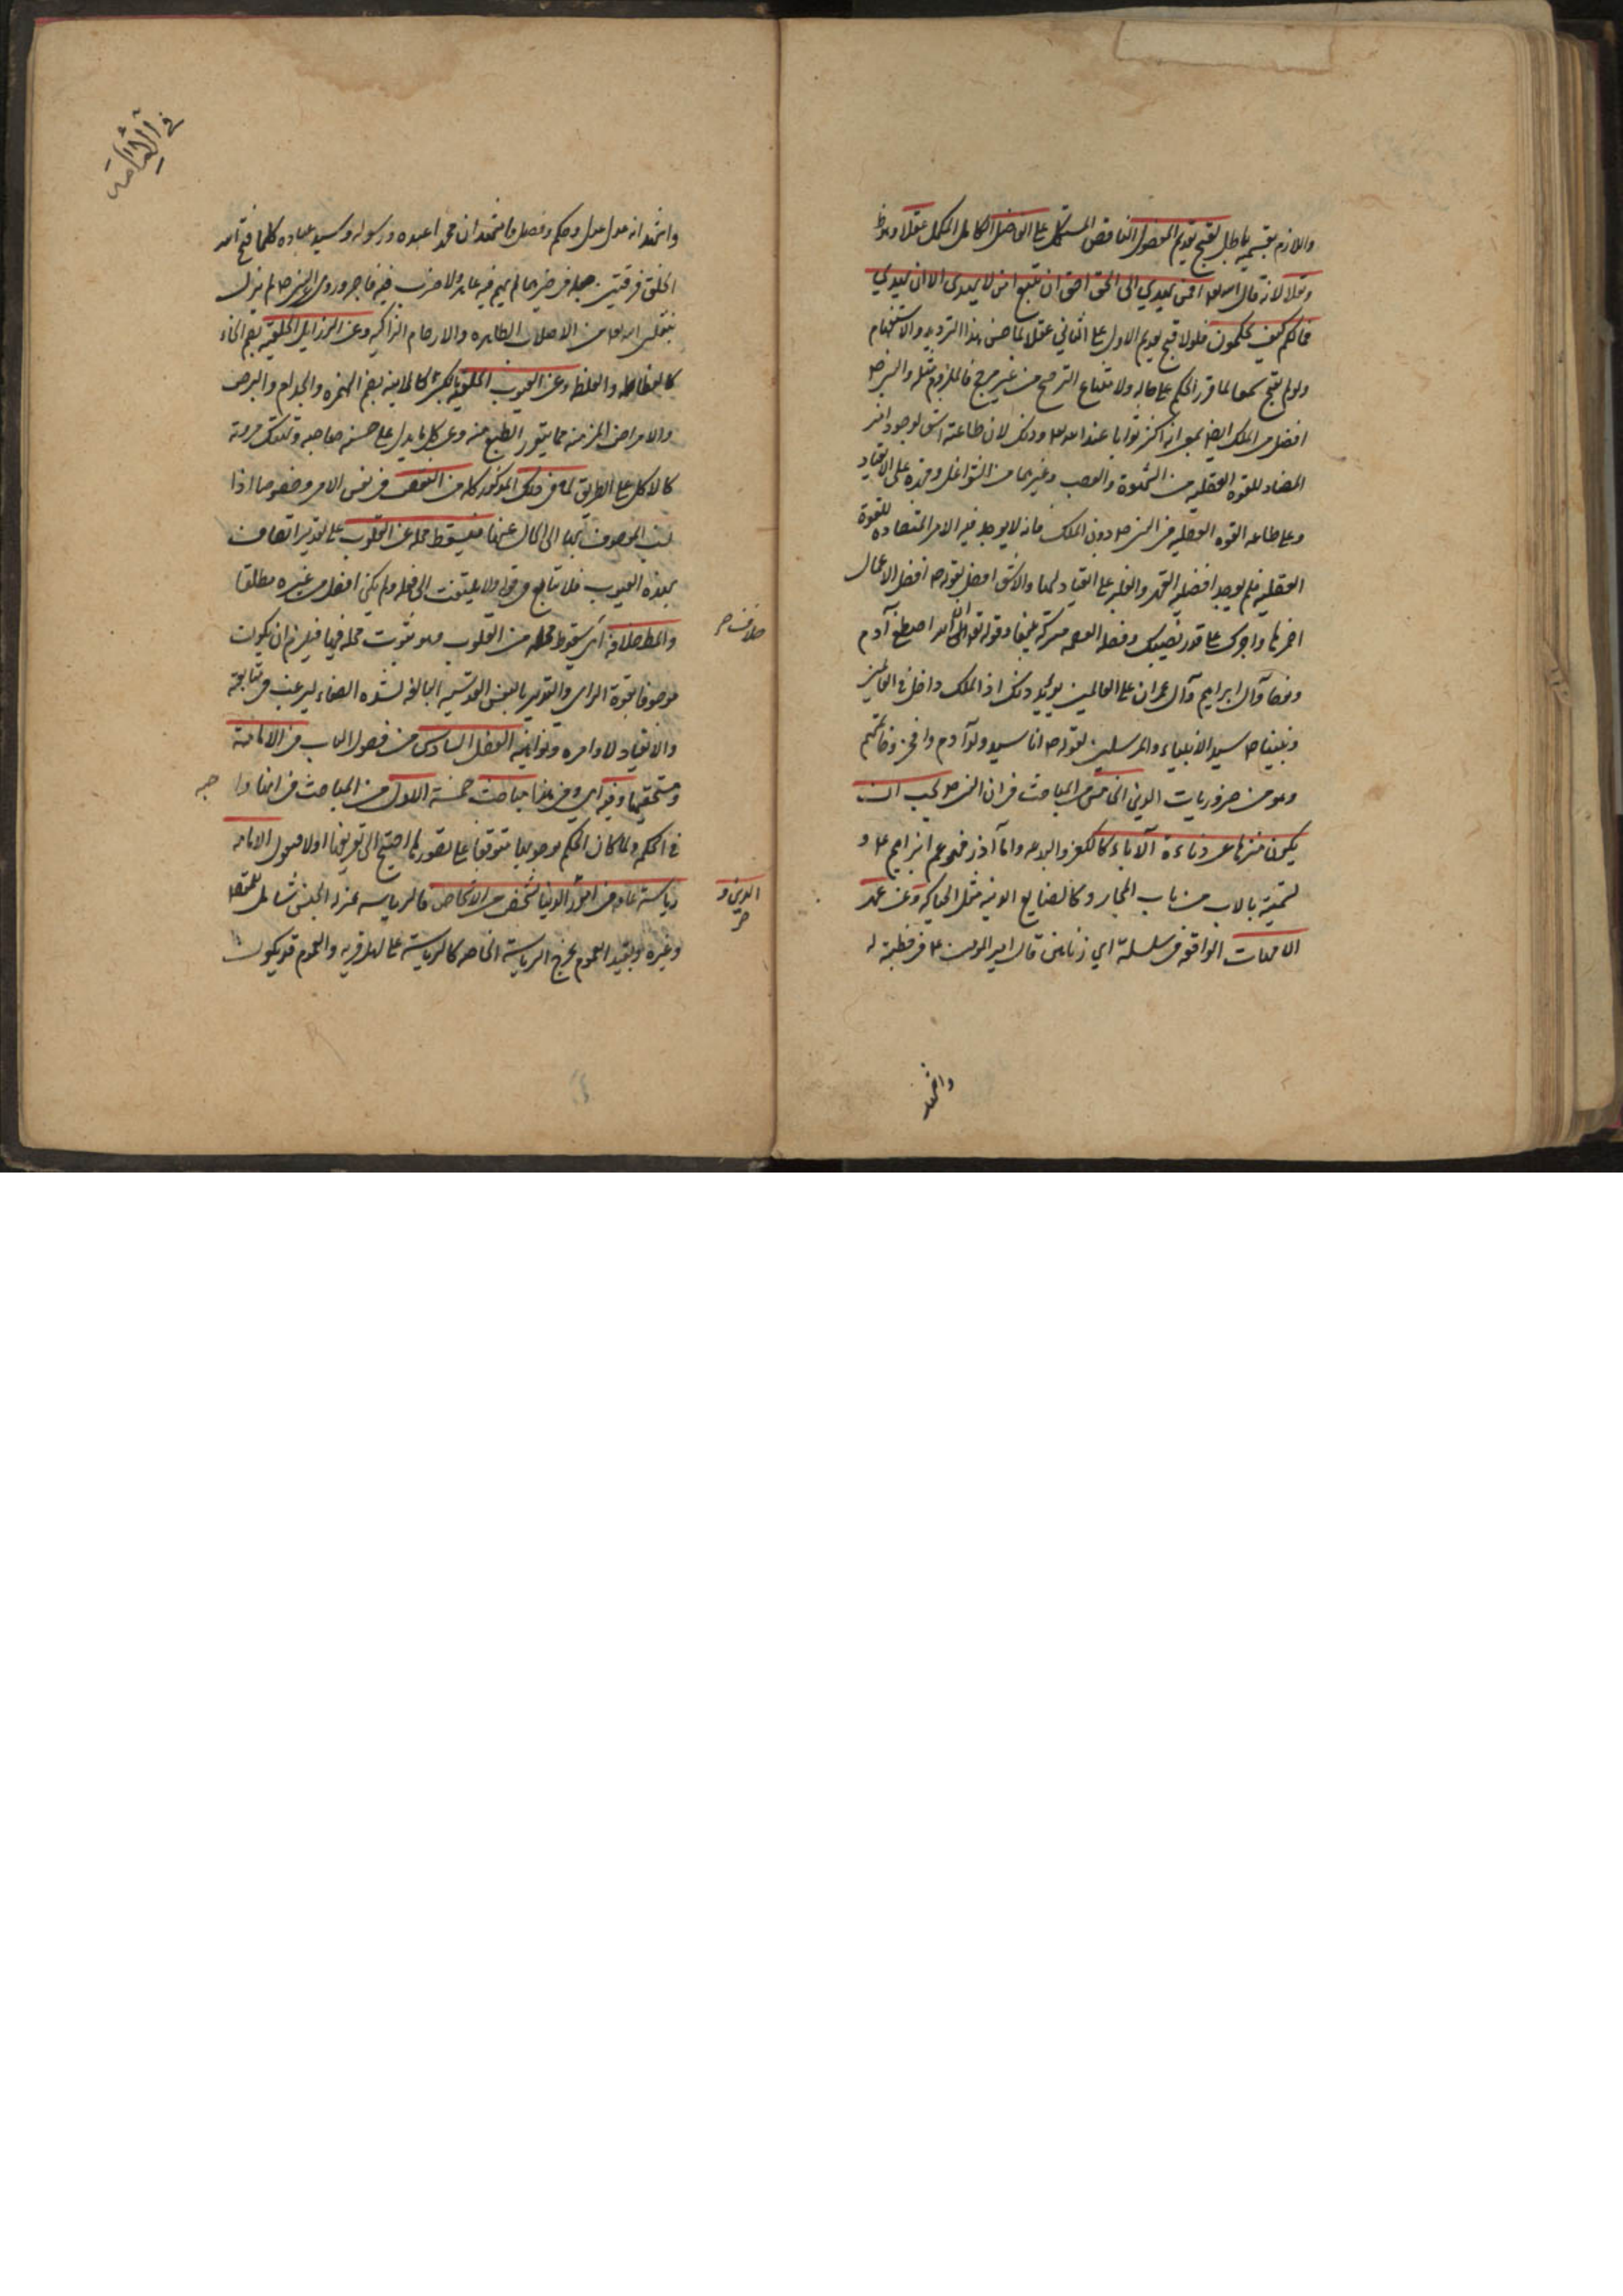 واللازم بقسميه باطل لقبح تقديم المفضول الناقص المستكمل على الفاضل الكامل المكمل عقلا
ونقلا لانه قال افمن يهدي الى الحق احق ان يتبع امن لا يهدي الا ان يهدي
فما لكم كيف تحكمون فلولا قبح تقديم الاول على الثاني عقلا لما حسن هذا الترديد والاستفهام
ولو لم يقبح الحكم على حاله ولامتناع الترجيح من غير مرجح فالملزوم مثله
افضل من الملك ايضا بمعنى انه اكثر ثوابا عند وذلك لان طاعته اشق لوجود
المضاد للقوة العقليه من الشهوة والغضب وغيرهما من الشواغل وقهره على الانقياد
وعلى طاعه القوه العقليه دون الملك فانه لا يوجد فيه الامر المتضاد للقوة
العقليه فلم يوجد افضليه القهر والغلبه على انقياد لها والاشق افضل لقوله افضل الاعمال
احمزها واجرك على قدر نصيبك وقوله تعالى ان الله اصطفى آدم
ونوحا وآل ابراهيم وآل عمران على العالمين يؤيد ذلك اذ الملك داخل في العالمين
ونبينا سيد الانبياء والمرسلين لقوله انا سيد ولد آدم ولا فخر
وهو من ضروريات الدين الخامس من المباحث في ان يجب ان
يكون منزها عن دناءة الآباء كالكفر واما آذر فهو عم ابراهيم
تسميته بالاب من باب المجاز وكالصنايع الدنيه مثل الحياكة وعن عهر
الامهات الواقعه في سلسلة اي زناهن قال امير في خطبة له
واشهد
في الامامة
واشهد انه عدل عدل وحكم وفصل واشهد ان محمدا عبده ورسوله وسيد عباده كلما نسخ الله
الخلق فرقتين جعله في خيرهما لم يسهم فيه عاهر ولا ضرب فيه فاجر وروي لم يزل
ينقلني من الاصلاب الطاهره والارحام الزاكيه وعن الرذايل الخلقيه بضم الخاء
كالفظاظه والغلظه وعن العيوب الخلقيه بكسرها كالابنه بضم الهمزه والجذام والبرص
والامراض المزمنه مما يتنفر الطبع منه وعن كل ما يدل على خسه صاحبه وتهتك مروته
كالاكل على الطريق لما في ذلك المذكور كله من النقص في نفس الامر وخصوصا اذا
نسب الموصوف بها الى الخالي عنها فيسقط محله عن القلوب على تقدير اتصافه
بهذه العيوب فلا يتابع في قوله ولا يلتفت الى فعله ولم يكن افضل من غيره مطلقا
والمط خلافه اي سقوط محله من القلوب وهو ثبوت محله فيها فيلزم ان يكون
خلافه
موصوفا بقوة الراي والتدبير بالنفس القدسيه البالغه لشده الصفاء ليرغب في متابعته
والانقياد لاوامره ونواهيه الفصل السادس من فصول الباب في الامامة
ومستحقيها وفيه اي وفي هذا مباحث خمسة الاول من المباحث في انها واجبه
في الحكم ولما كان الحكم بوجوبها متوقفا على تصورها احتيج الى تعريفها اولا فيقول الامامه
رياسة عامه في امور الدنيا لشخص من الاشخاص فالرياسه بمنزله الجنس شامل للمقصد
الدين و
وغيره وبقيد العموم يخرج الرياسة الخاصه كالرياسة على اهل قريه والعموم قد يكون